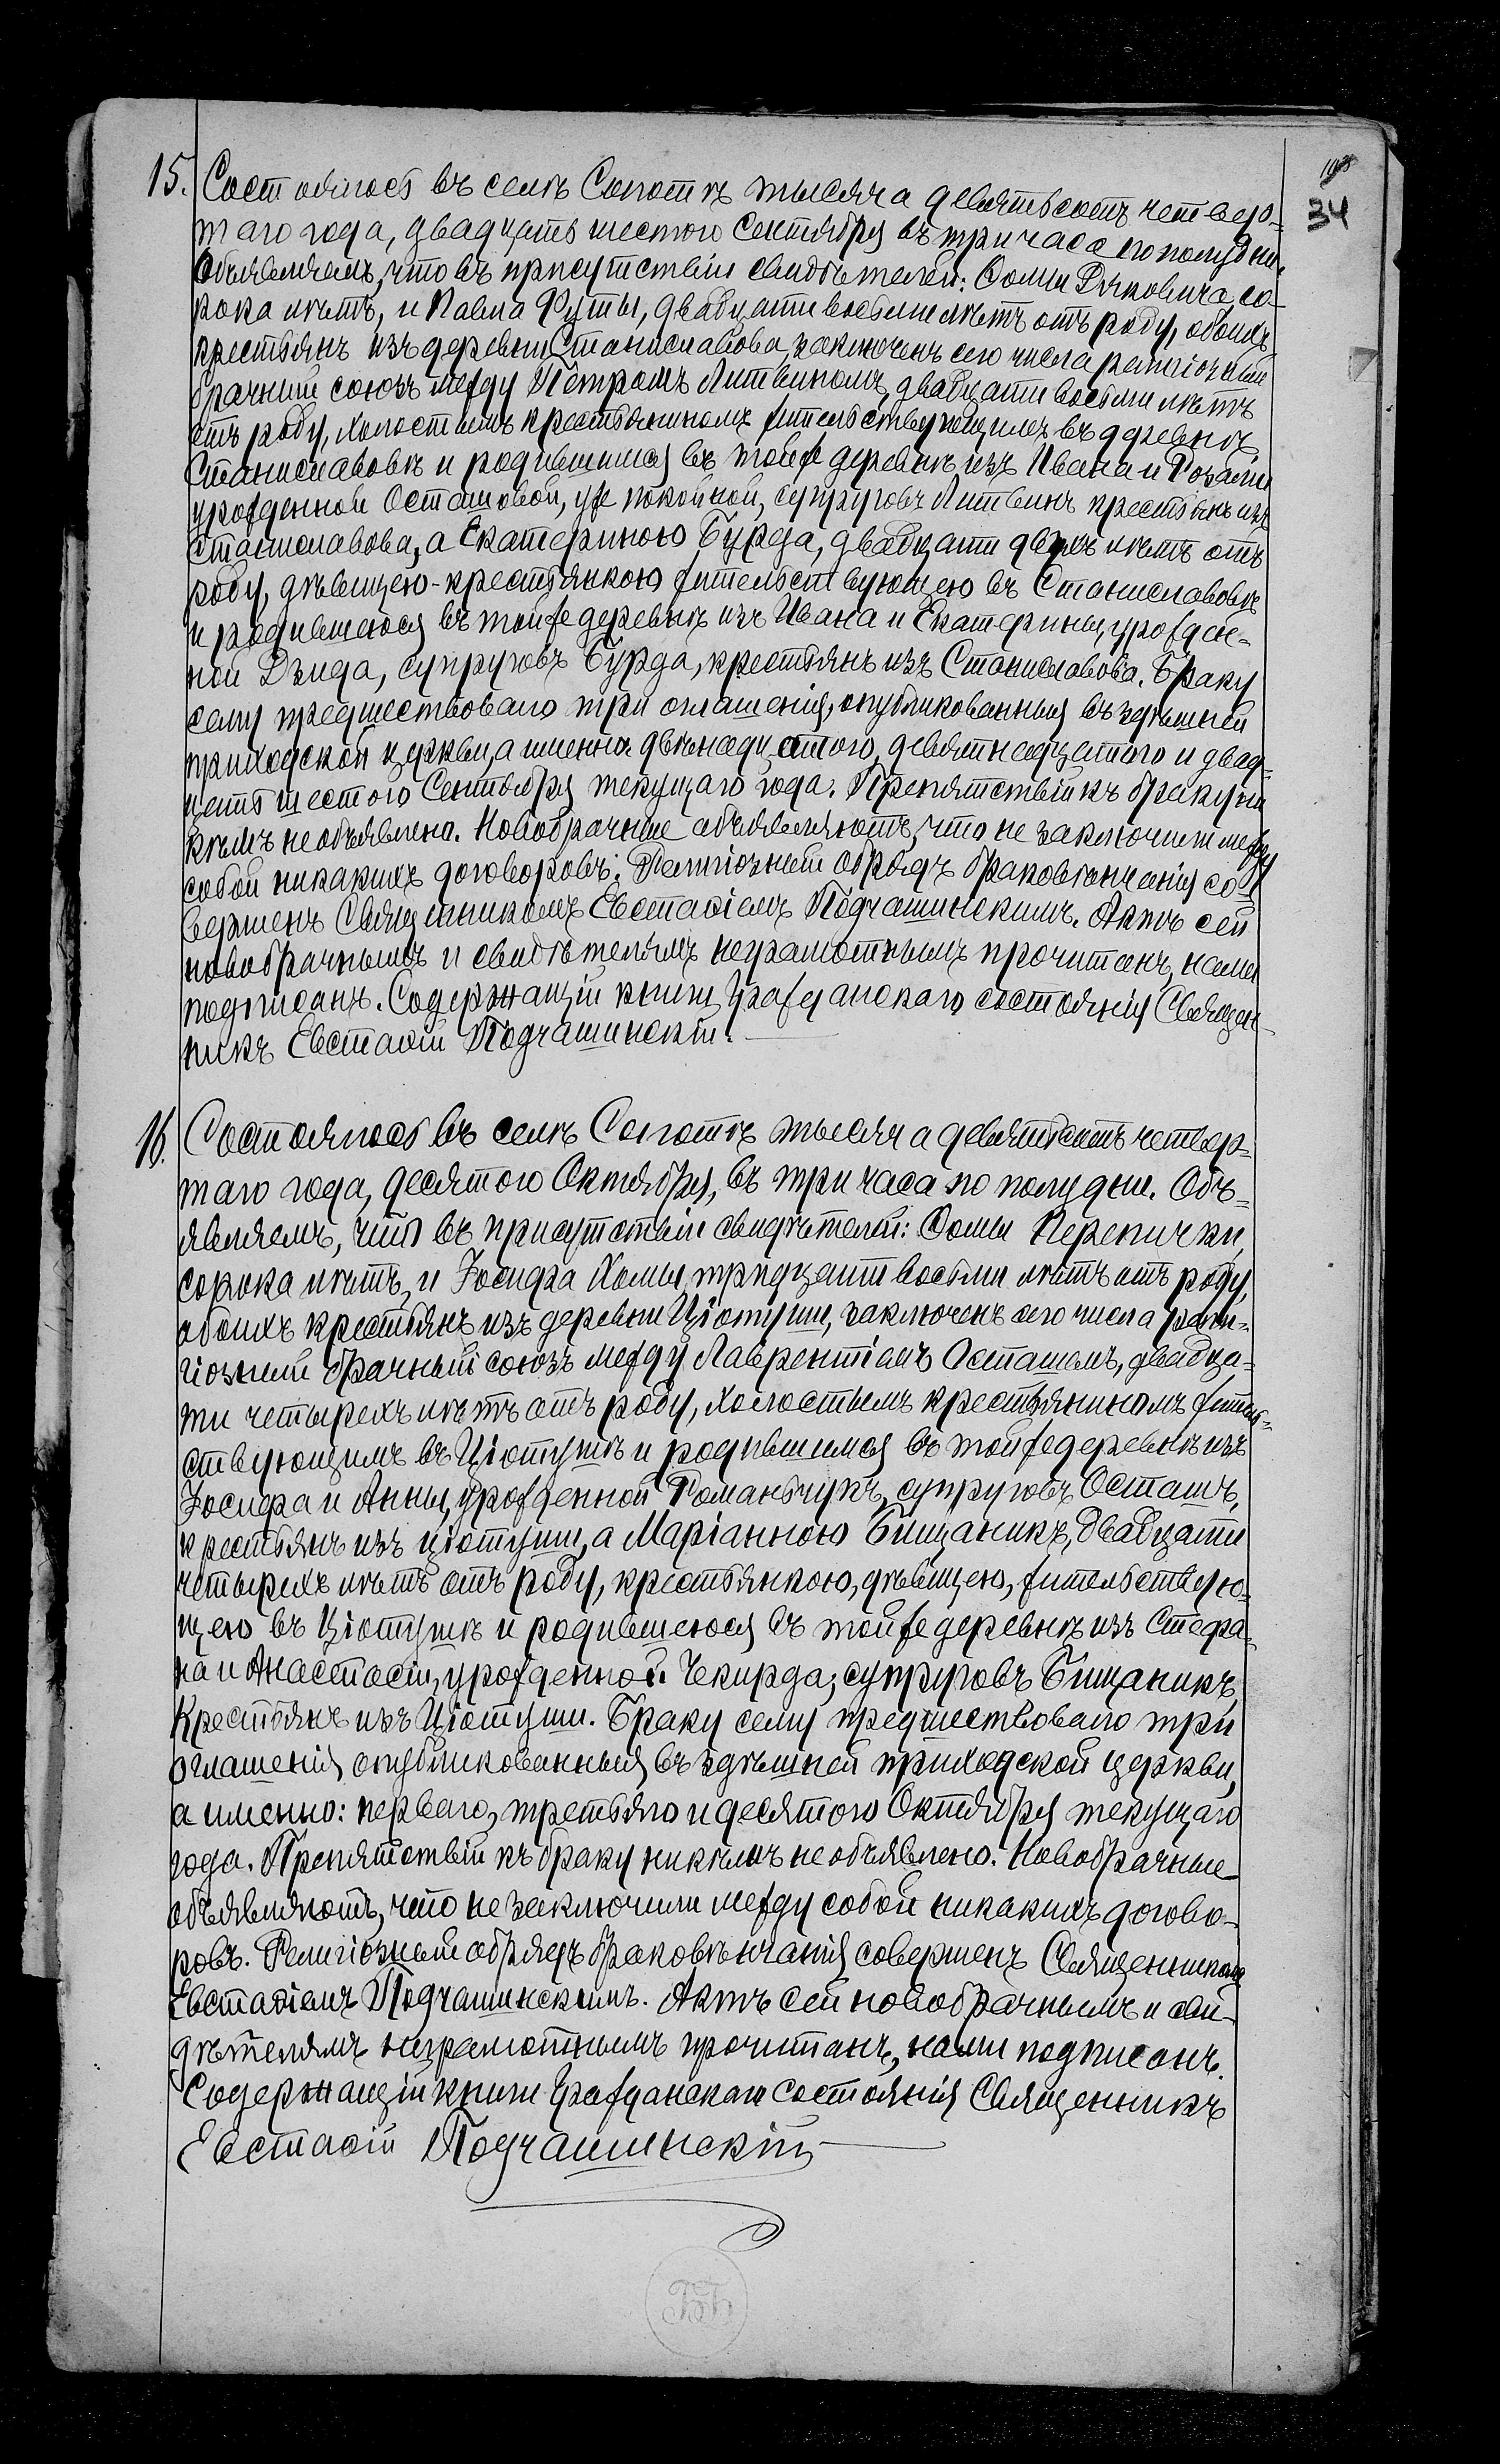 34
15. Состоялось въ селѣ Сопотѣ тысяча девятьсотъ четвер-
таго года, двадцать шестого Сентября въ три часа по полудни.
Объявляемъ, что въ присутствіи свидѣтелей: Ѳомы Дяковича, со-
рока лѣтъ, и Павла Футы, двадцати восьми лѣтъ отъ роду, обоихъ
крестьянъ изъ деревни Станиславова, заключенъ сего числа религіозный
брачный союзъ между Петромъ Литвиномъ, двадцати восьми лѣтъ
отъ роду, холостымъ крестьяниномъ жительствующимъ въ деревнѣ
Станиславовѣ и родившимся въ тойже деревнѣ изъ Ивана и Розаліи
урожденной Осташовой, уже покойной, супруговъ Литвинъ крестьянъ изъ
Станиславова, а Екатериною Бурда, двадцати двухъ лѣтъ отъ
роду, дѣвицею-крестьянкою жительствующею въ Станиславовѣ
и родившеюся въ тойже деревнѣ изъ Ивана и Екатерины, урожден-
ной Дзида, супруговъ Бурда, крестьянъ изъ Станиславова. Браку
сему предшествовало три оглашенія, опубликованныя въ здѣшней
приходской церкви, а именно двѣнадцатого, девятнадцатого и двад-
цать шестого Сентября текущаго года. Препятствій къ браку ни
кѣмъ не объявлено. Новобрачные объявляютъ, что не заключили между
собой никакихъ договоровъ. Религіозный обрядъ браковѣнчанія со-
вершенъ Священникомъ Евстаѳіемъ Подчашинскимъ. Актъ сей
новобрачнымъ и свидѣтелямъ неграмотнымъ прочитанъ, нами
подписанъ. Содержащій книги Гражданскаго состоянія Священ-
никъ Евстаѳій Подчашинскій.
16. Состоялось въ селѣ Сопотѣ тысяча девятьсотъ четвер-
таго года, десятого Октября, въ три часа по полудни. Объ-
являемъ, что въ присутствіи свидѣтелей: Ѳомы Перепички,
сорока лѣтъ, и Іосифа Хомы, тридцати восьми лѣтъ отъ роду,
обоихъ крестьянъ изъ деревни Ціотуши, заключенъ сего числа рели-
гіозный брачный союзъ между Лаврентіемъ Осташемъ, двадца-
ти четырехъ лѣтъ отъ роду, холостымъ крестьяниномъ житель-
ствующимъ въ Ціотушѣ и родившимся въ тойже деревнѣ изъ
Іосифа и Анны, урожденной Романьчукъ, супруговъ Осташъ,
крестьянъ изъ Ціотуши, а Маріанною Бищаникъ, двадцати
четырехъ лѣтъ отъ роду, крестьянкою, дѣвицею, жительствую-
щею въ Ціотушѣ и родившеюся въ тойже деревнѣ изъ Стефа-
на и Анастасіи, урожденной Чекирда, супруговъ Бищаникъ,
Крестьянъ изъ Ціотуши. Браку сему предшествовало три
оглашенія, опубликованныя въ здѣшней приходской церкви,
а именно: первого, третьяго и десятого Октября текущаго
года. Препятствій къ браку никѣмъ не объявлено. Новобрачные
объявляютъ, что не заключили между собой никакихъ догово-
ровъ. Религіозный обрядъ браковѣнчанія совершенъ Священникомъ
Евстаѳіемъ Подчашинскимъ. Актъ сей новобрачнымъ и сви-
дѣтелямъ неграмотнымъ прочитанъ, нами подписанъ.
Содержащій книги Гражданскаго состоянія Священникъ
Евстаѳій Подчашинскій